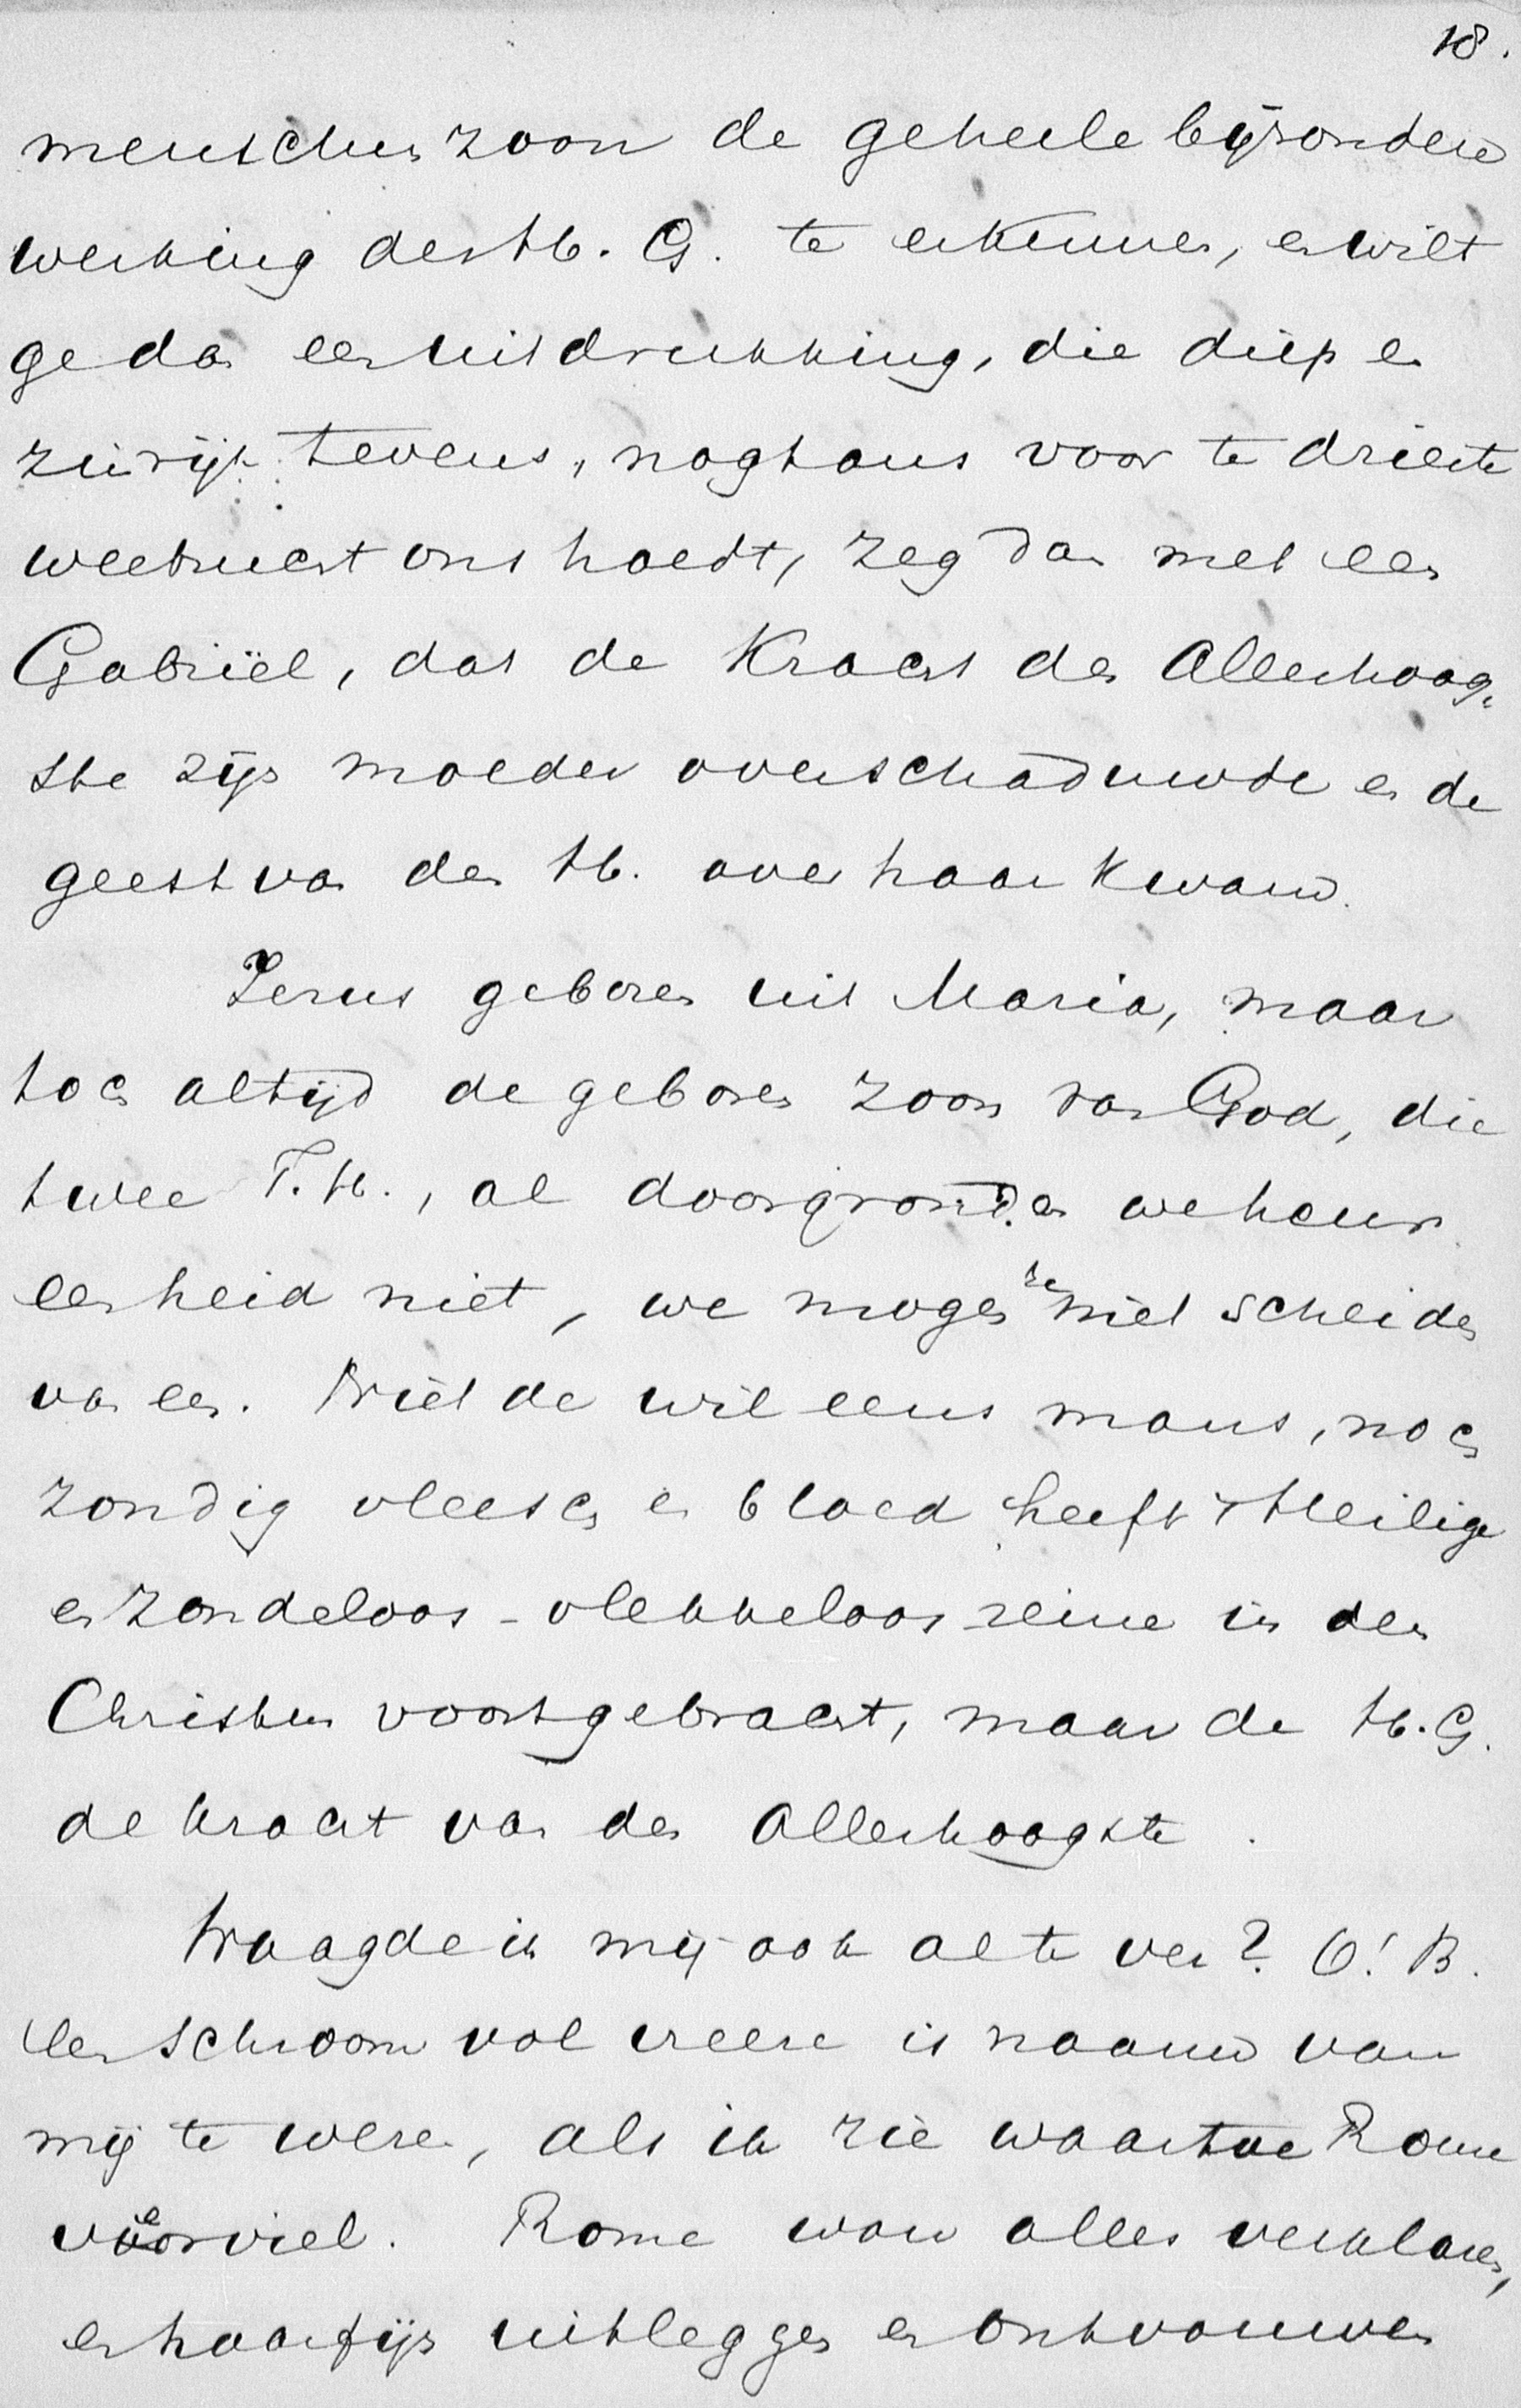 18.
menschenzoon de geheele bijzondere
werking des H. G. te erkennen, en wilt
ge dan een uitdrukking, die diep en
zinrijk tevens, nogtans voor te drieste
weetzucht ons hoedt, zeg dan met een
Gabriël, dat de Kracht des Allerhoog-
ste zijn moeder overschaduwde en de
geest van den H. over haar kwam.
Jezus geboren uit Maria, maar
toch altijd de geboren zoon van God, die
twee T. H., al doorgronden we heur
eenheid niet, we mogen ze niet scheiden
van een. Niet de wil eens mans, noch
zondig vleesch en bloed heeft 't Heilige
en zondeloos-vlekkeloos reine in den
Christus voortgebracht, maar de H. G.
de kracht van den Allerhoogste.
Waagde ik mij ook al te ver? O! B.
een schroom vol vreeze is naauw van
mij te weren, als ik zie waartoe Rome
verviel. Rome wou alles verklaren,
en haarfijn uitleggen en ontvouwen